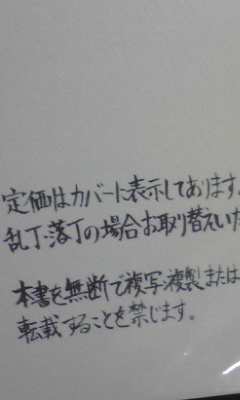 定価はカバーに表示してあります。
乱丁・落丁の場合お取り替えいた
本書を無断で複写・複製または
転載することを禁じます。